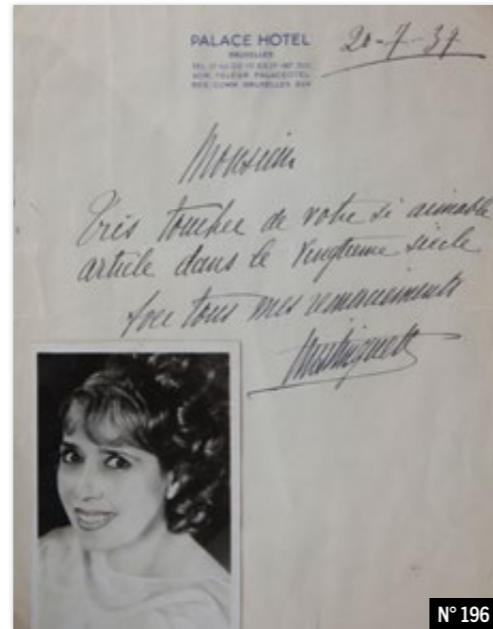 PALACE HOTEL
BRUXELLES
20-7-37
Monsieur
Très touchée de votre si aimable
article dans le Vingtième siècle
Avec tous mes remerciements
Mistinguett
N° 196